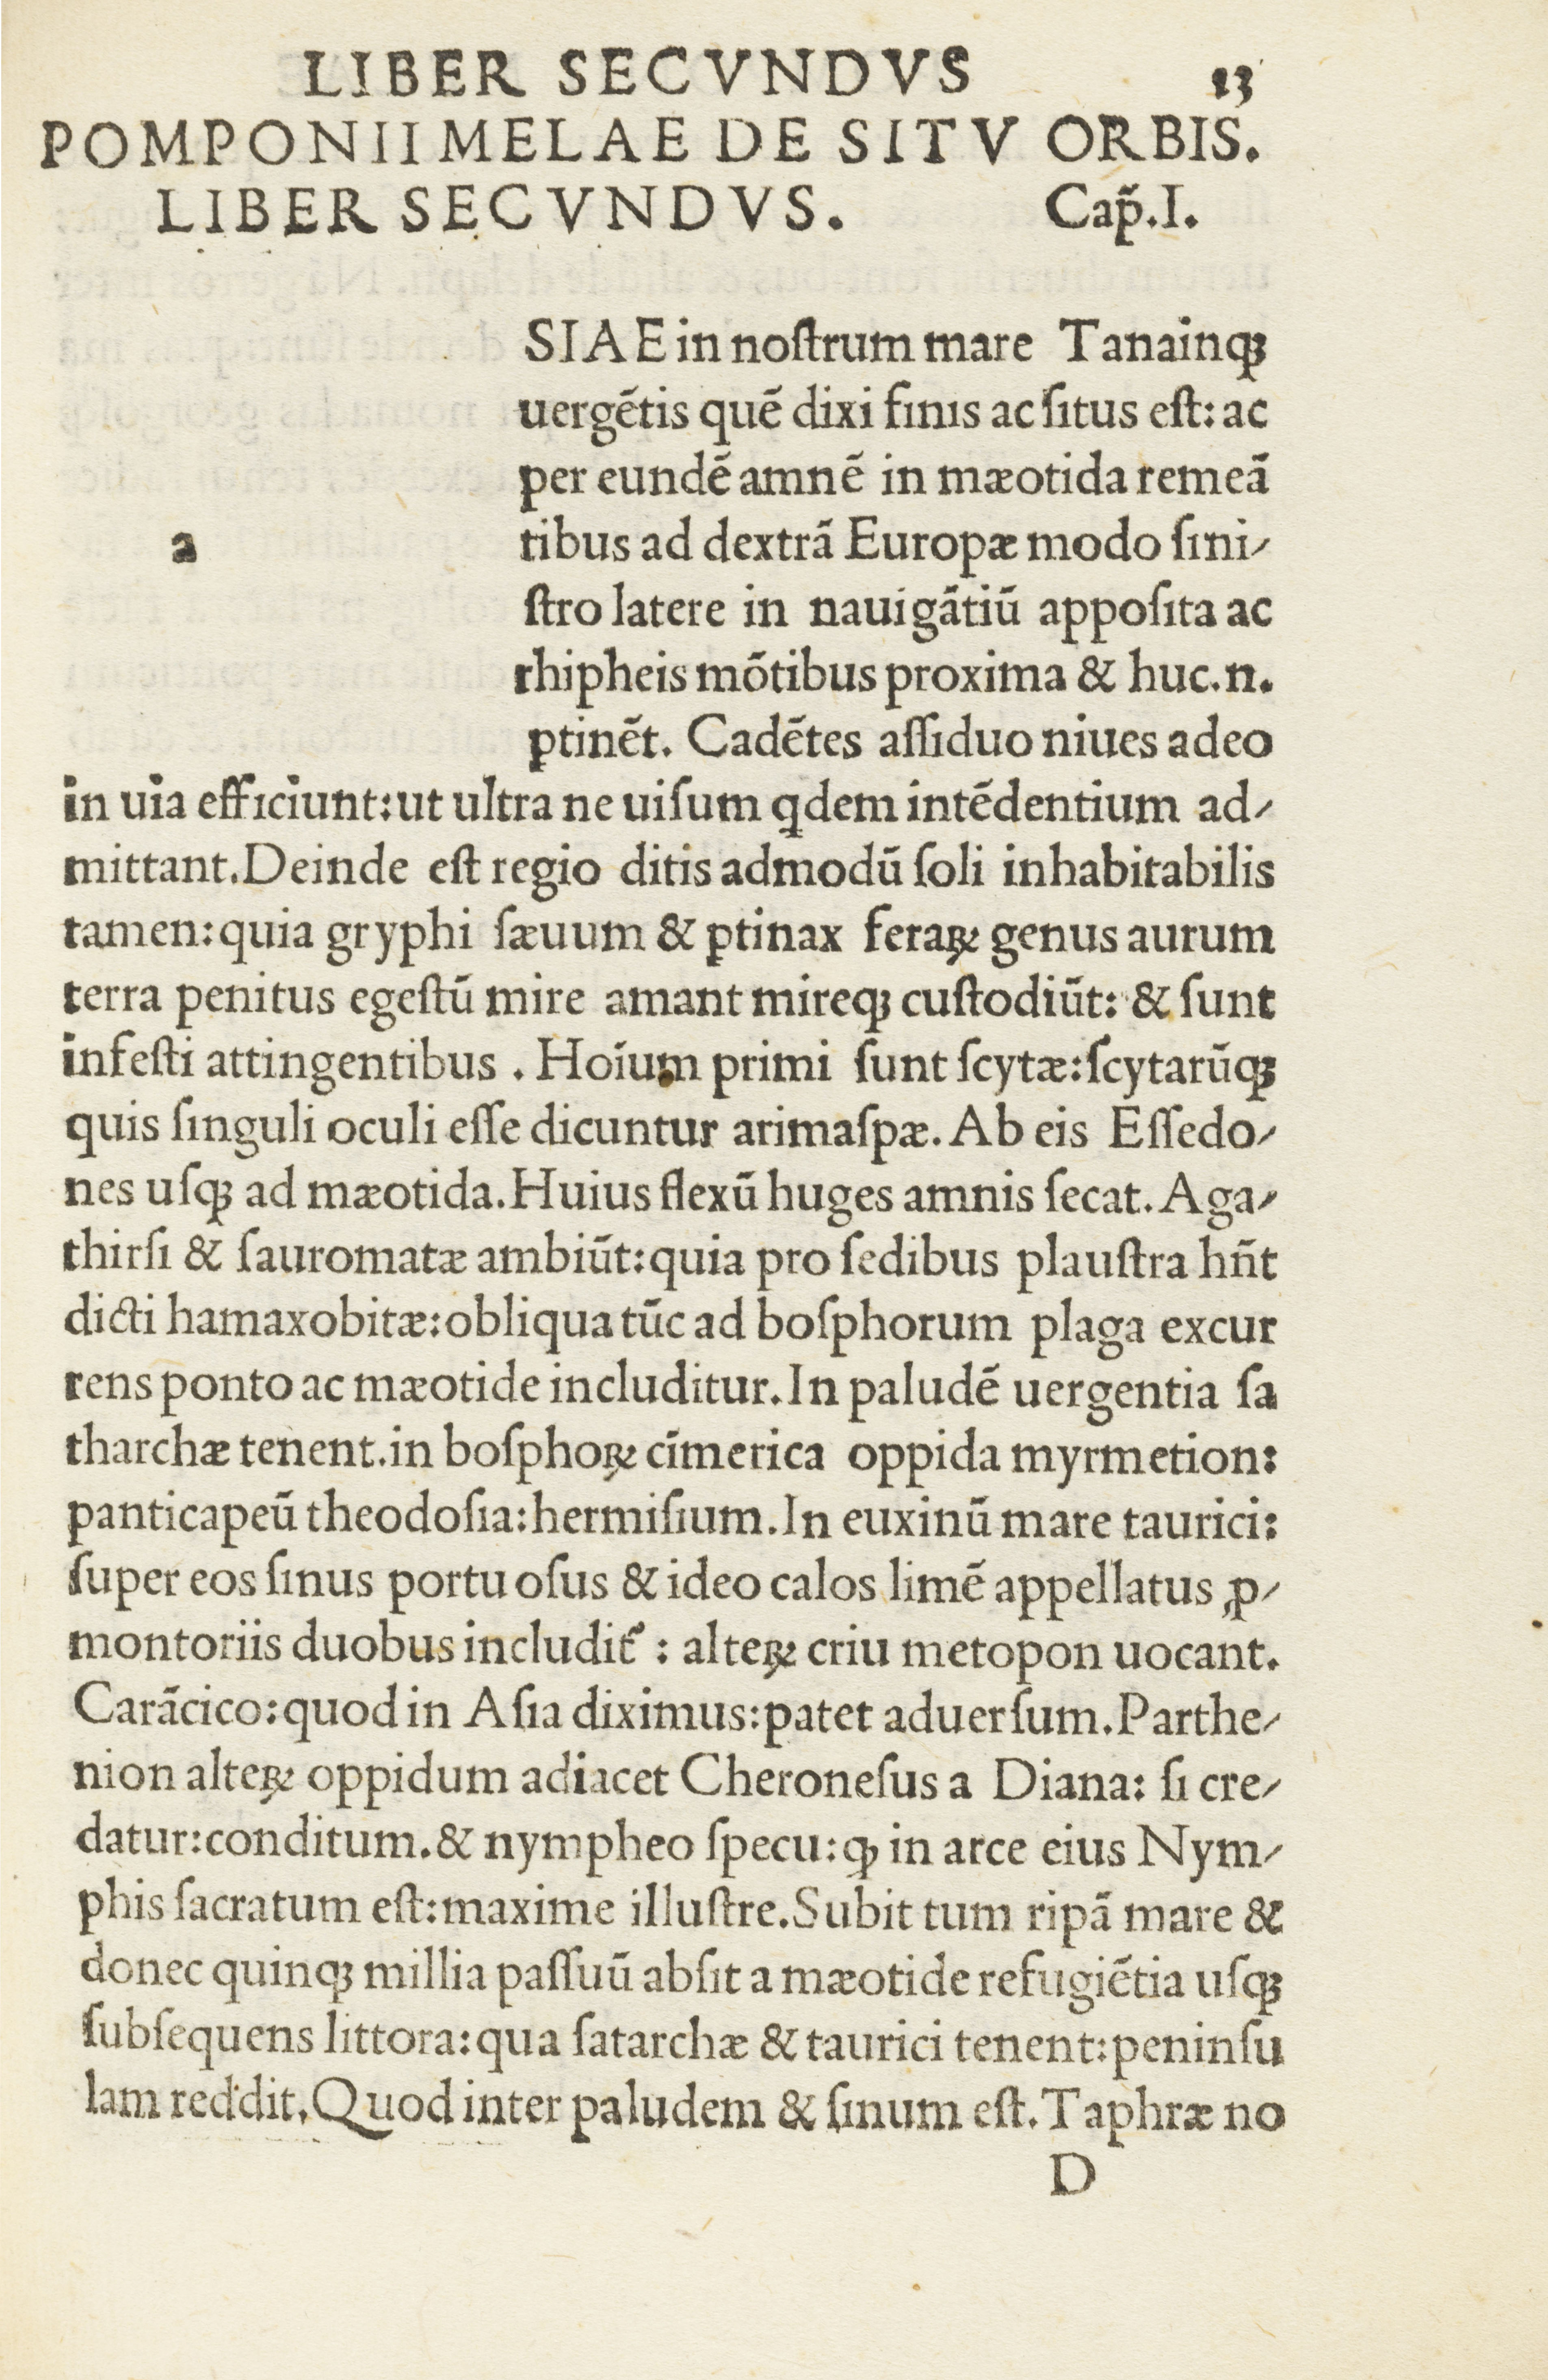 LIBER SECVNDVS 13
POMPONII MELAE DE SITV ORBIS.
LIBER SECVNDVS. Cap̃.I.
SIAE in noſtrum mare Tanainqꝫ
uergẽtis quẽ dixi finis ac ſitus eſt: ac
per eundẽ amnẽ in mæotida remeã
a
tibus ad dextrã Europæ modo ſini⸗
ſtro latere in nauigãtiũ appoſita ac
rhipheis mõtibus proxima & huc.n.
ꝑtinẽt. Cadẽtes aſſiduo niues adeo
in uia efficiunt: ut ultra ne uiſum ꝗdem intẽdentium ad⸗
mittant. Deinde eſt regio ditis admodũ ſoli inhabitabilis
tamen: quia gryphi ſæuum & ꝑtinax feraꝝ genus aurum
terra penitus egeſtũ mire amant mireqꝫ cuſtodiũt: & ſunt
infeſti attingentibus . Hoĩum primi ſunt ſcytæ: ſcytarũqꝫ
quis ſinguli oculi eſſe dicuntur arimaſpæ. Ab eis Eſſedo⸗
nes uſqꝫ ad mæotida. Huius flexũ huges amnis ſecat. Aga⸗
thirſi & ſauromatæ ambiũt: quia pro ſedibus plauſtra hñt
dicti hamaxobitæ: obliqua tũc ad boſphorum plaga excur
rens ponto ac mæotide includitur. In paludẽ uergentia ſa
tharchæ tenent. in boſphoꝝ cĩmerica oppida myrmetion:
panticapeũ theodoſia: hermiſium. In euxinũ mare taurici:
ſuper eos ſinus portu oſus & ideo calos limẽ appellatus ꝓ⸗
montoriis duobus includit᷑ : alteꝝ criu metopon uocant.
Carãcico: quod in Aſia diximus: patet aduerſum. Parthe⸗
nion alteꝝ oppidum adiacet Cheroneſus a Diana: ſi cre⸗
datur: conditum. & nympheo ſpecu: ꝙ in arce eius Nym⸗
phis ſacratum eſt: maxime illuſtre. Subit tum ripã mare &
donec quinqꝫ millia paſſuũ abſit a mæotide refugiẽtia uſqꝫ
ſubſequens littora: qua ſatarchæ & taurici tenent: peninſu
lam reddit. Quod inter paludem & ſinum eſt. Taphræ no
D